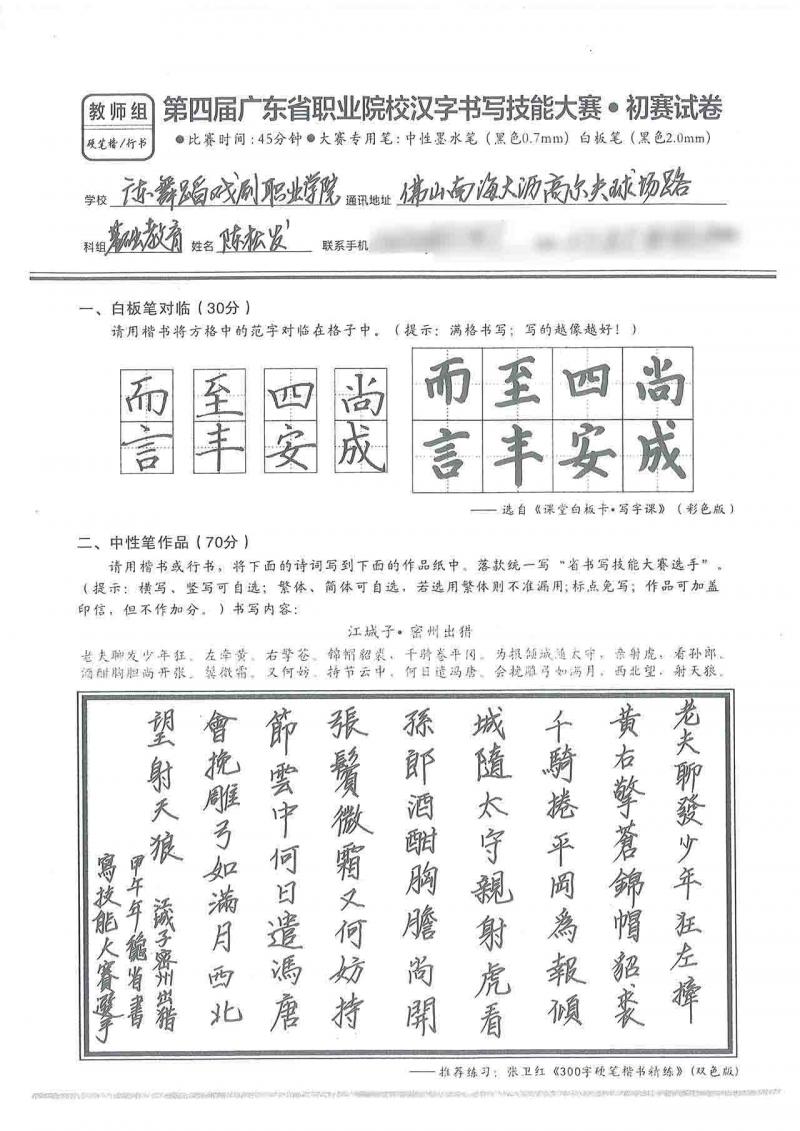 教师组
硬笔楷/行书
第四届广东省职业院校汉字书写技能大赛·初赛试卷
●比赛时间:45分钟●大赛专用笔:中性墨水笔（黑色0.7mm）白板笔（黑色2.0mm）
学校 广东舞蹈戏剧职业学院 通讯地址 佛山南海大沥高尔夫球场路
科组 基础教育 姓名 陈松发 联系手机
一、白板笔对临（30分）
请用楷书将方格中的范字对临在格子中。（提示：满格书写；写的越像越好！）
而 至 四 尚 而 至 四 尚
言 丰 安 成 言 丰 安 成
——选自《课堂白板卡·写字课》（彩色版）
二、中性笔作品（70分）
请用楷书或行书，将下面的诗词写到下面的作品纸中。落款统一写“省书写技能大赛选手”。
（提示：横写、竖写可自选；繁体、简体可自选，若选用繁体则不准漏用;标点免写；作品可加盖
印信，但不作加分。）书写内容:
江城子·密州出猎
老夫聊发少年狂。左牵黄。右擎苍。锦帽貂裘，千骑卷平冈。为报倾城随太守，亲射虎，看孙郎。
酒酣胸胆尚开张。鬓微霜。又何妨。持节云中。何日遣冯唐。会挽雕弓如满月，西北望，射天狼。
老夫聊發少年狂左牽
黃右擎蒼錦帽貂裘
千騎捲平岡為報傾
城隨太守親射虎看
孫郎酒酣胸膽尚開
張鬢微霜又何妨持
節雲中何日遣馮唐
會挽雕弓如滿月西北
望射天狼 江城子密州出猎
甲午年 省書
寫技能大賽選手
——推荐练习：张卫红《300字硬笔楷书精练》（双色版）